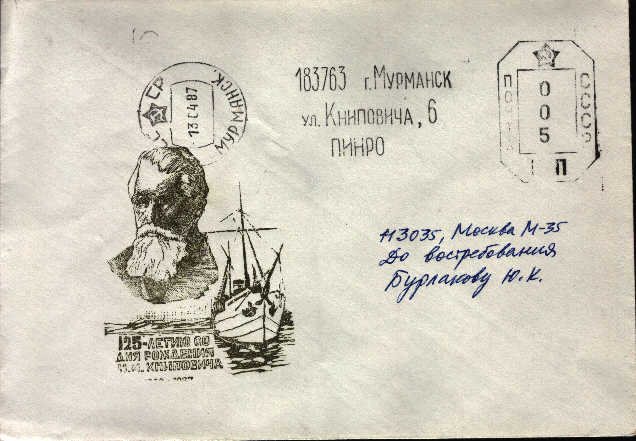 СССР
МУРМАНСК
13 04 87
183763 г. МУРМАНСК
ул. КНИПОВИЧА, 6
ПИНРО
ПОЧТА
СССР
005
П
113035, Москва М-35
До востребования
Бурлакову Ю.К.
125-ЛЕТИЮ СО
ДНЯ РОЖДЕНИЯ
Н.М. КНИПОВИЧА